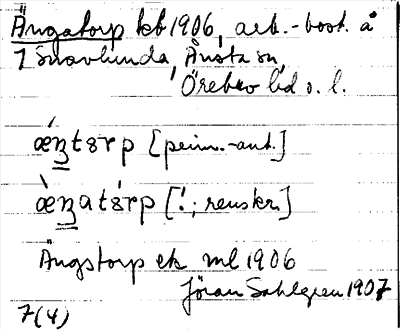 Ängatorp kb 1906, arb.-bost. å
7 Snavlunda, Ånsta sn,
Örebro lid o. l.
ǽŋtɵrp [peim.-ant.]
æ̀ŋatɵ́rp [!; renskr.]
Ängstorp ek ml 1906
Jöran Sahlgren 1907
7(4)